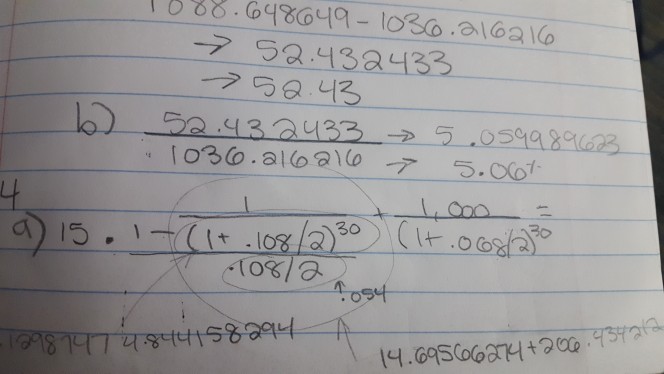 1088.648649 - 1036.216216
→ 52.432433
→ 52.43
b) 52.432433 → 5.059989623
1036.216216 → 5.06%
4
a) 15 . 1 - 1 + 1,000 =
(1 + .108/2)30 (1 + .068/2)30
.108/2
↑.054
.1298747 4.844158294
14.69566274 + 206.434212